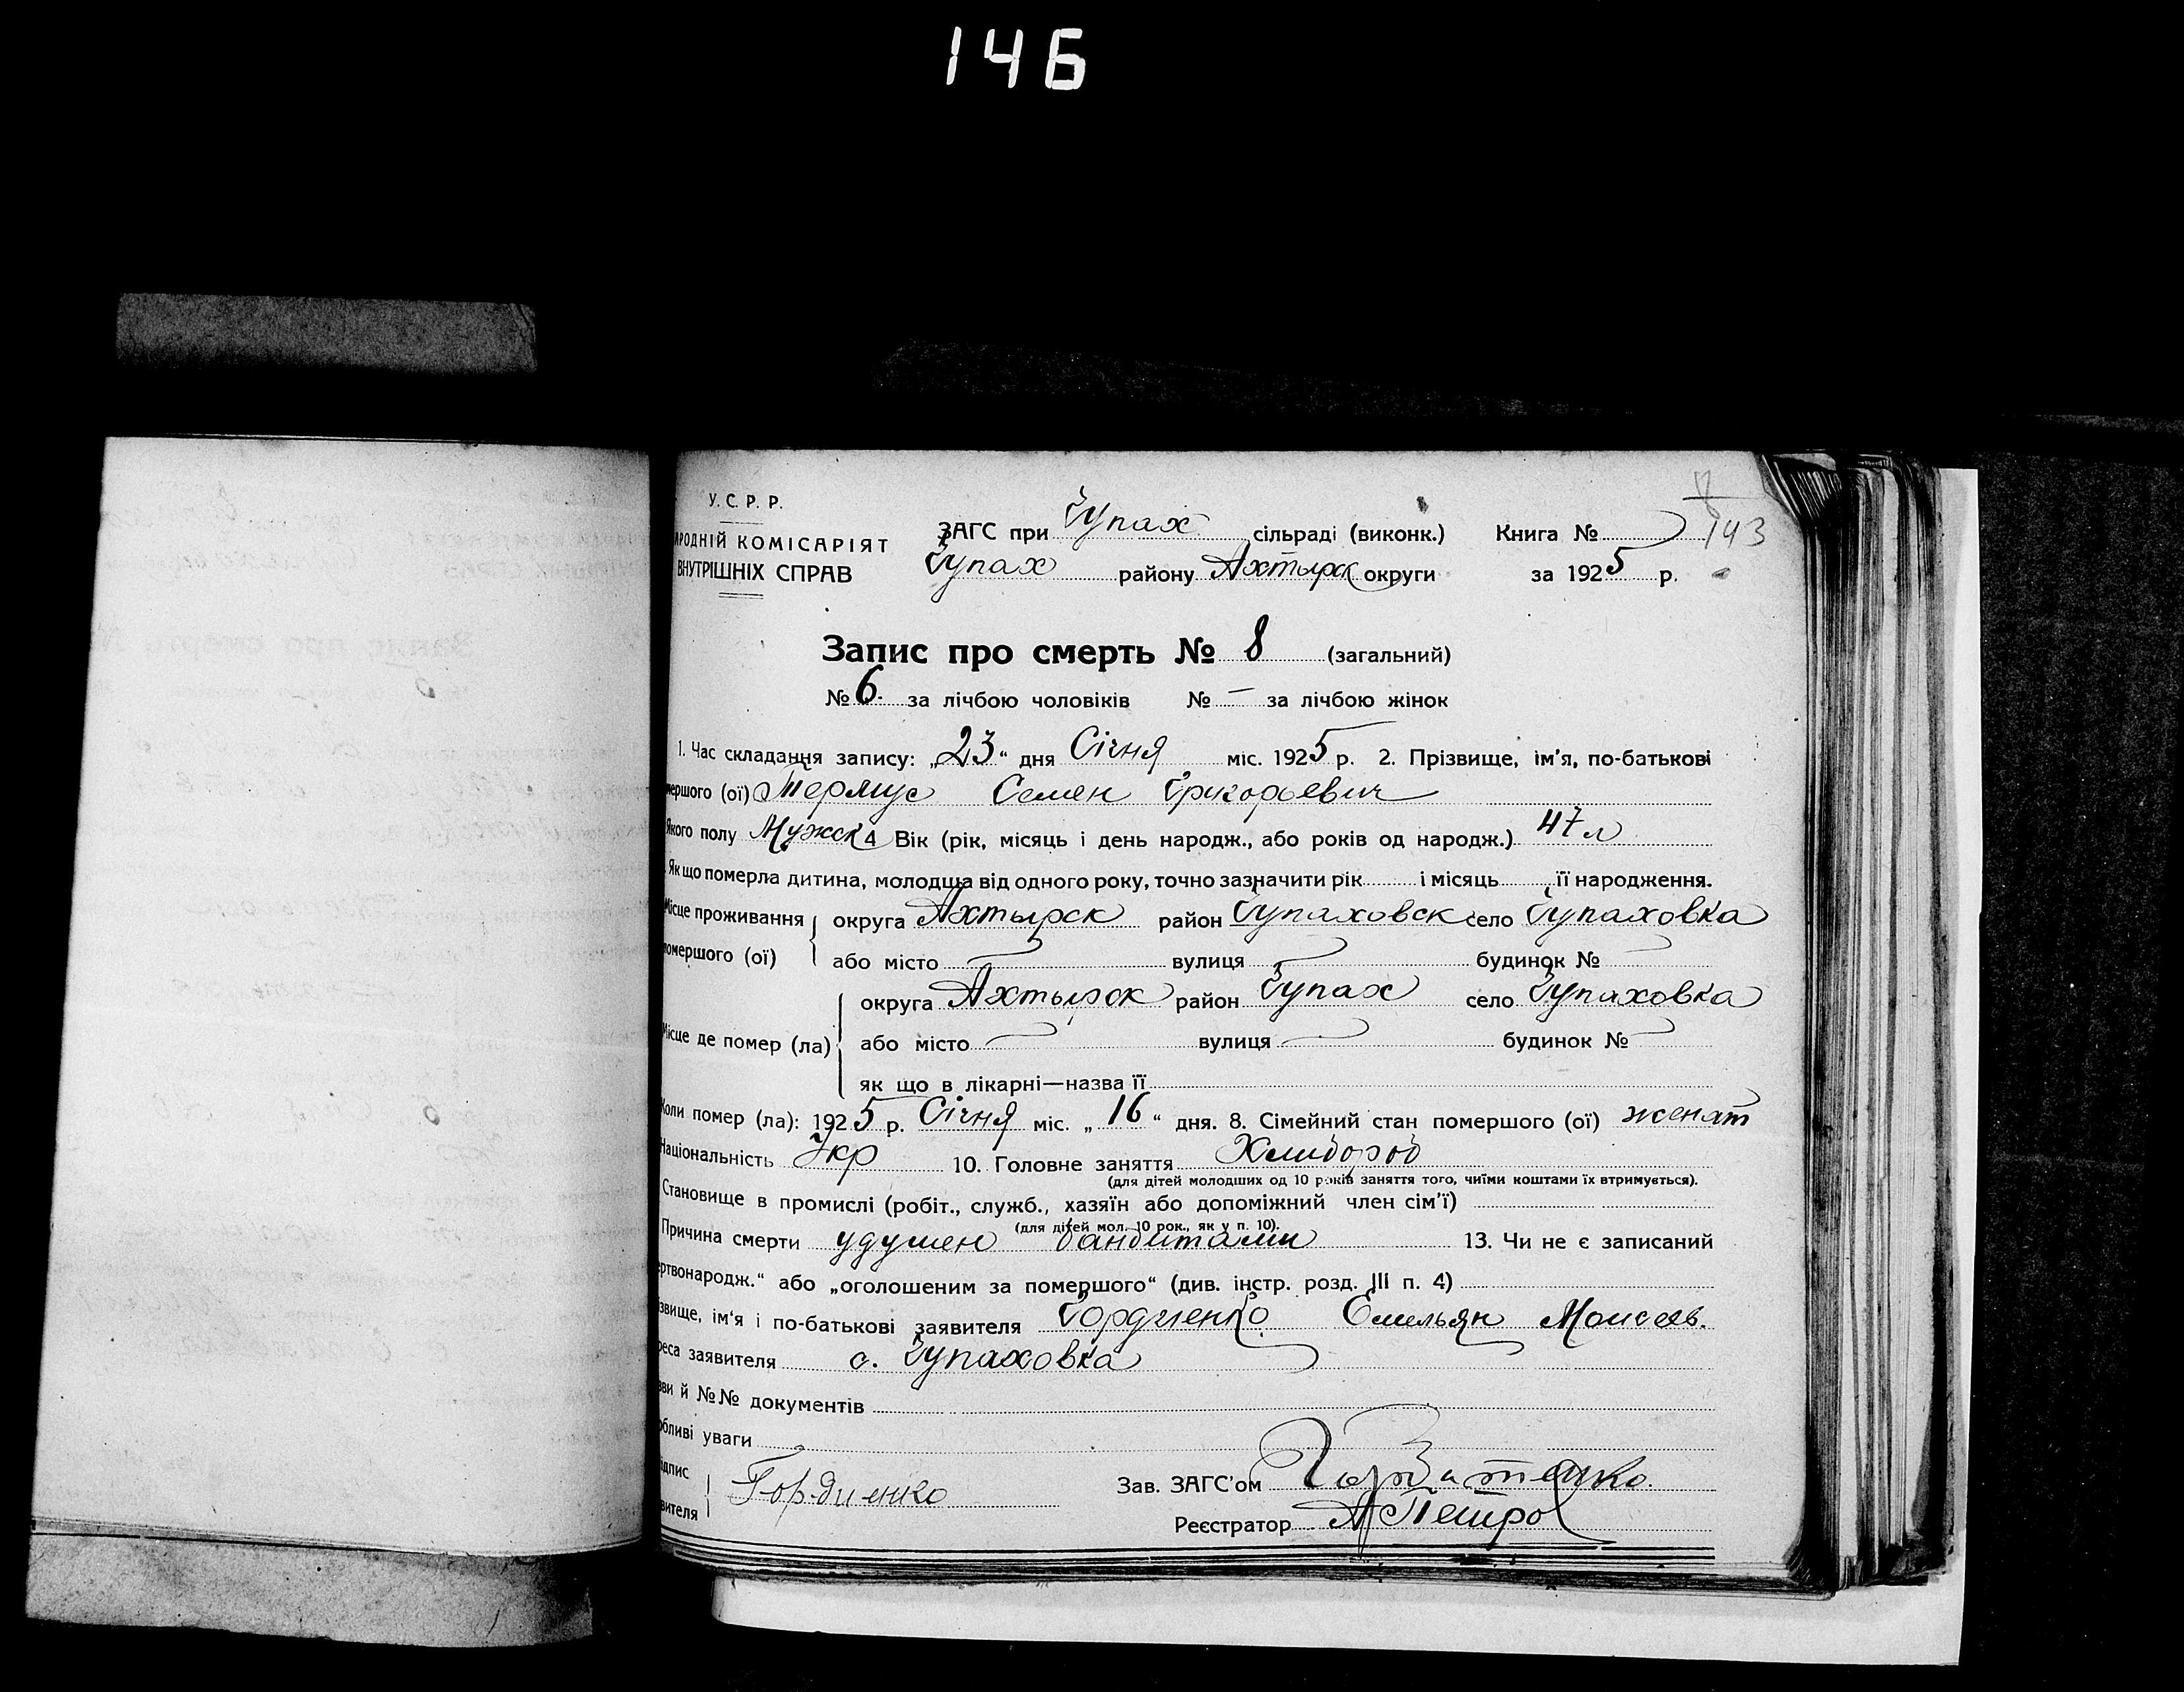 146
143
У. С. Р. Р.
РОДНІЙ КОМІСАРІЯТ
ВНУТРІШНІХ СПРАВ
ЗАГС при Чупах сільраді (виконк.) Книга №
Чупах району Ахтырск округи за 1925 р.
Запис про смерть № 8 (загальний)
№ 6. за лічбою чоловіків № — за лічбою жінок
1. Час складання запису: „23“ дня Січня міс. 1925 р. 2. Прізвище, ім'я, по-батькові
мершого (ої) Семен Григорьевич
Якого полу Мужск 4 Вік (рік, місяць і день народж., або років од народж.) 47 л
Як що померла дитина, молодша від одного року, точно зазначити рік і місяць її народження.
Місце проживання
помершого (ої)
округа Ахтырск район Чупаховск село Чупаховка
або місто — вулиця — будинок № —
Місце де помер (ла)
округа Ахтырск район Чупах село Чупаховка
або місто — вулиця — будинок № —
як що в лікарні—назва її
Коли помер (ла): 1925 р. Січня міс. „16“ дня. 8. Сімейний стан помершого (ої) женат
Національність Укр 10. Головне заняття Хлибороб
(для дітей молодших од 10 років заняття того, чиїми коштами їх втримується).
Становище в промислі (робіт., служб., хазяїн або допоміжний член сім'ї)
(для дітей мол. 10 рок., як у п. 10).
Причина смерти удушен бандитами 13. Чи не є записаний
ртвонародж.“ або „оголошеним за помершого“ (див. інстр. розд. III п. 4)
звище, ім'я і по-батькові заявителя Гордиенко Емельян Моисеев.
реса заявителя с. Чупаховка
зви й №№ документів
обливі уваги
ідпис
вителя
Гордиенко
Зав. ЗАГС'ом
Реєстратор АПетро